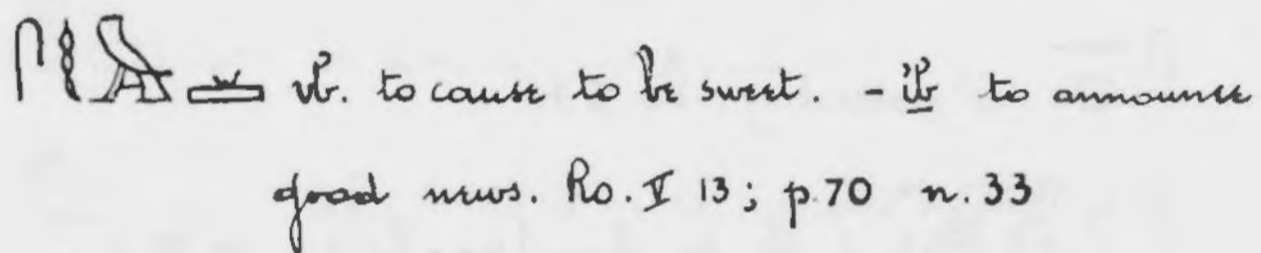 vb. to cause to be sweet. - ỉb to announce
good news. Ro. V 13; p.70 n.33